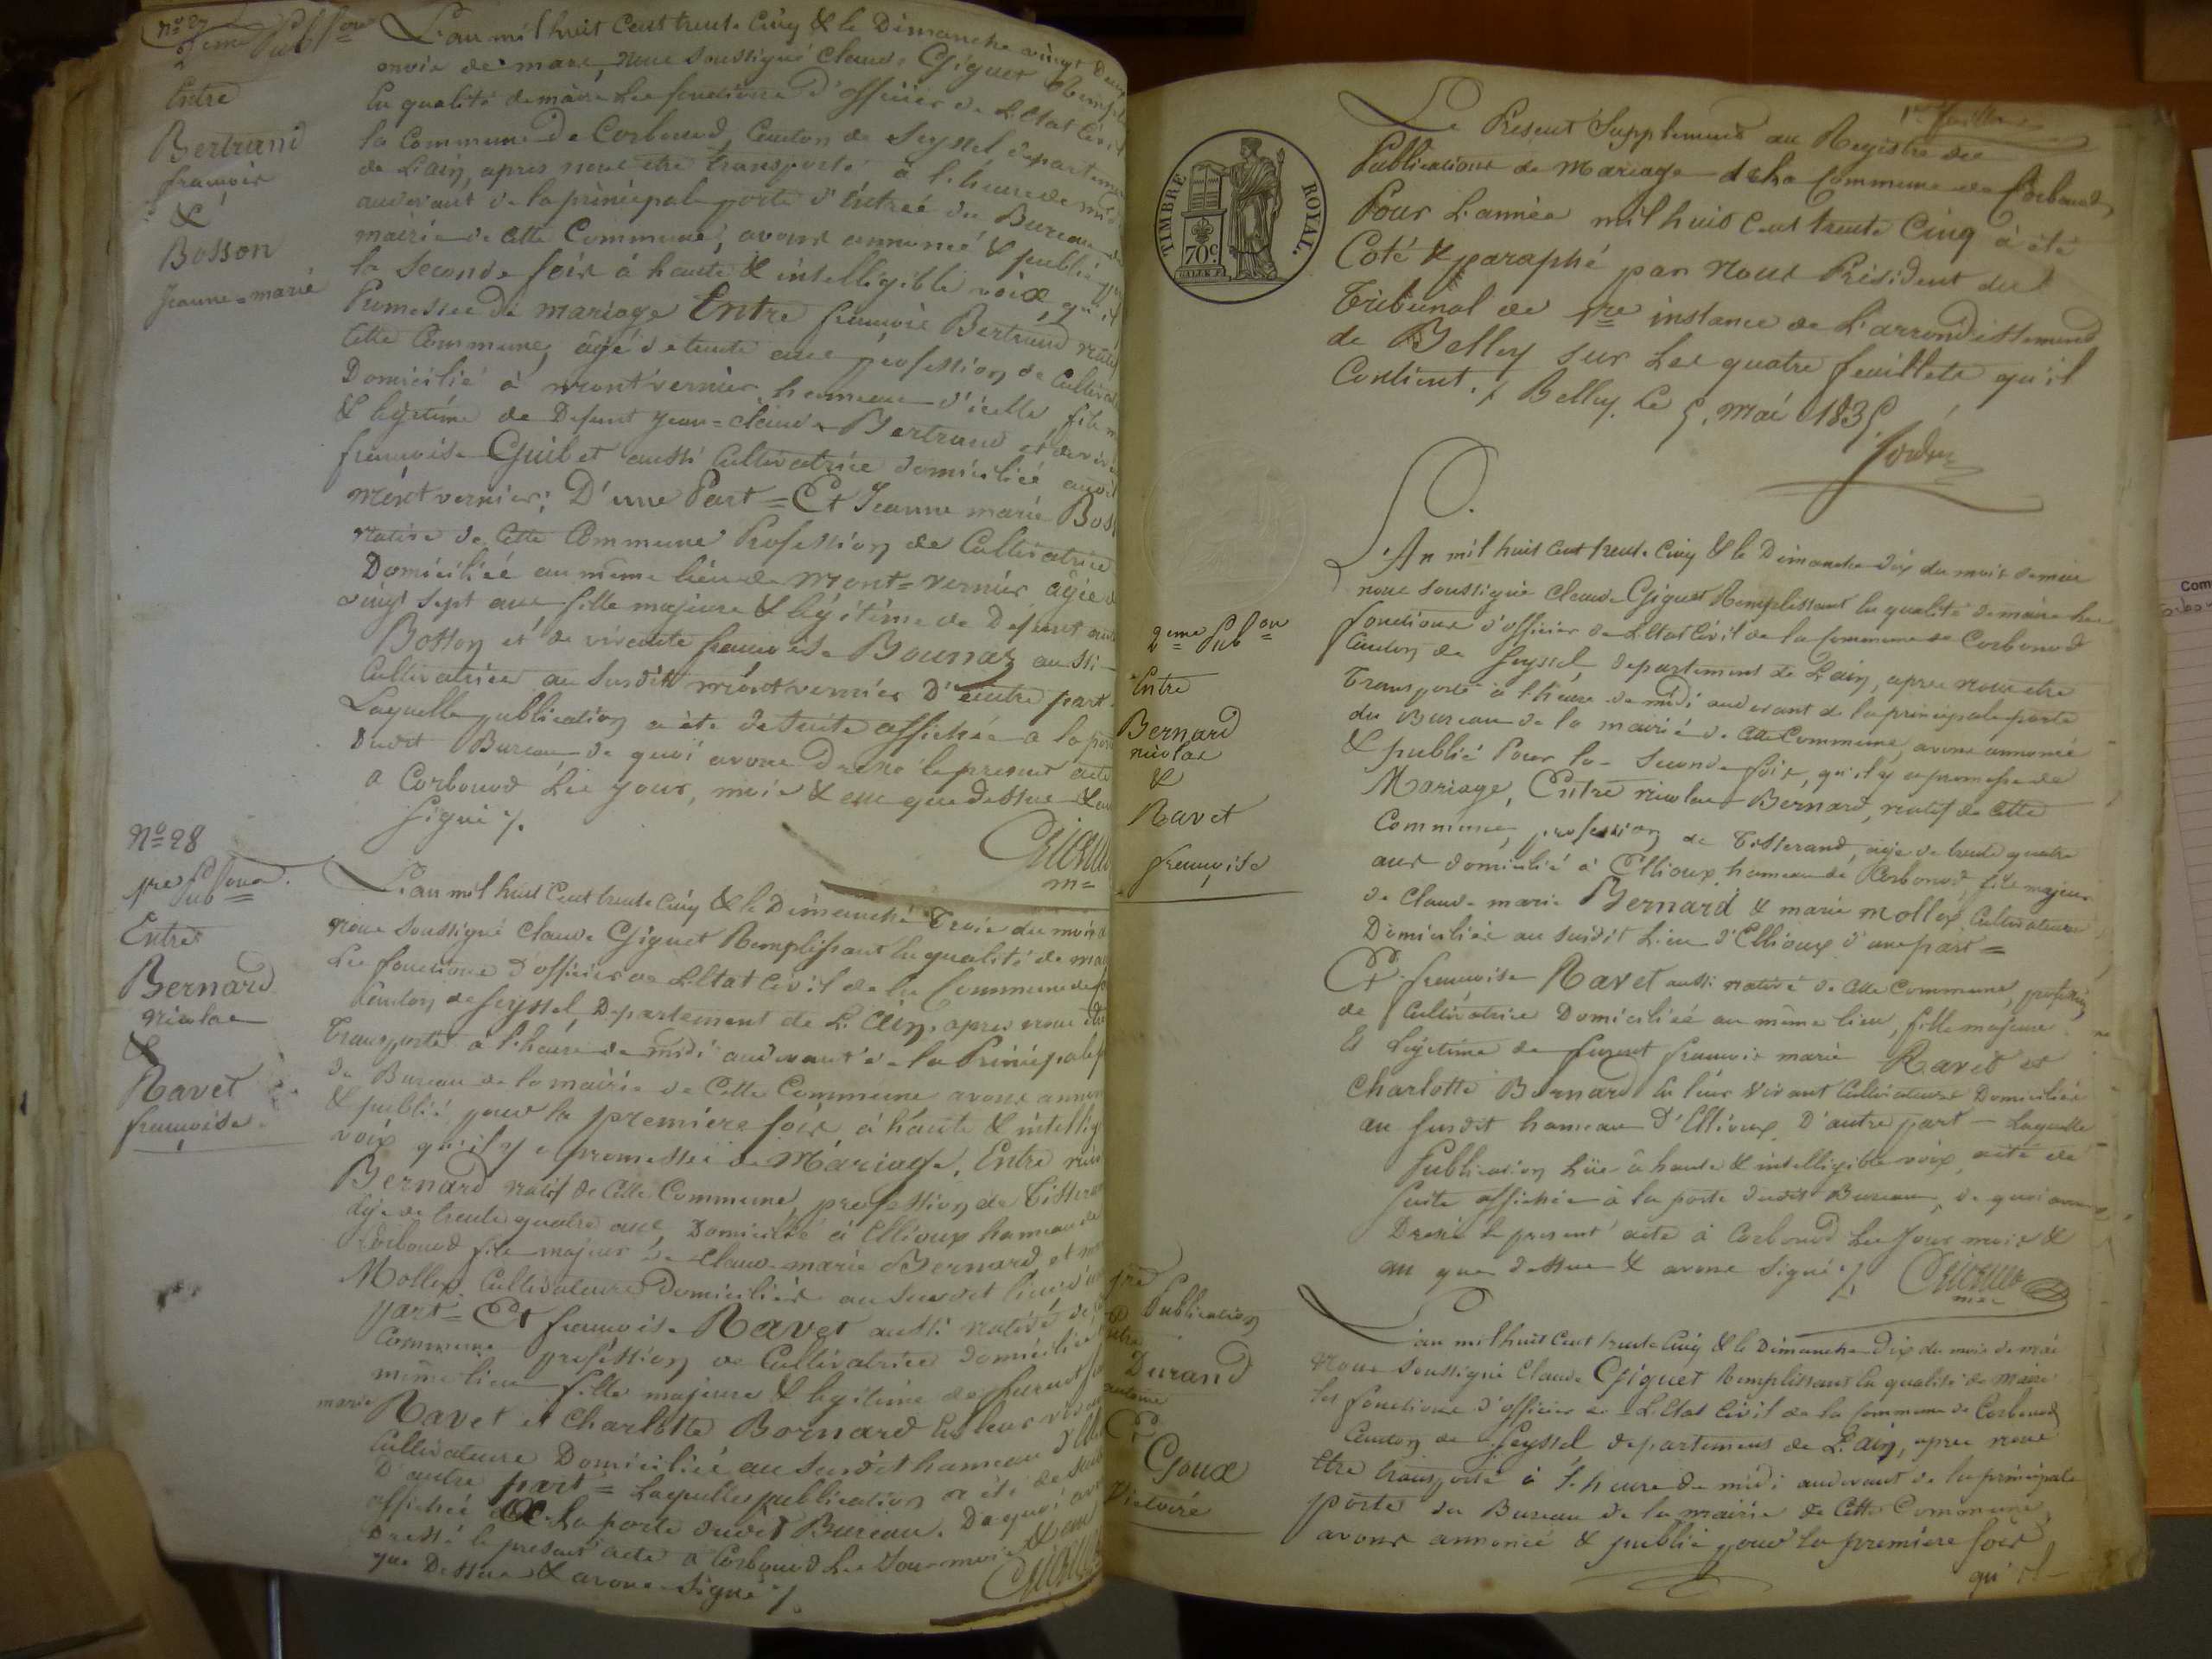 nº 27
2eme Pub on
Entre
Bertrand
françois
&
Bosson
Jeanne=marie
L'an mil huit Cent trente Cinq & le Dimanche vingt
de mars, nous soussigné Claude Giguet
la qualité de maire Les fonctions d'officier de L'Etat Civil
la Commune de Corbonod, Canton de Seyssel departeme
de L'ain, apres nous être transporté à l'heure de mi
audevant de la principale porte d'Entrée du Bureau de
mairie de Cette Commune, avons annoncé & publié
la Seconde fois à haute & intelligible voix, qu'il
Promesse de mariage Entre françois Bertrand natif
Cette Commune, âgé de trente ans profession de Cultivat
Domicilié à montvernier hameau d'icelle, fils m
& légitime de Defunt Jean=Claude Bertrand et de viv
françoise Guilet aussi Cultivatrice domiciliée audit
montvernier; D'une Part = Et Jeanne marie Boss
native de Cette Commune Profession de Cultivatrice
Domiciliée au même lieu de mont=vernier âgée d
vingt sept ans fille majeure & légitime de Defunt
Bosson et de vivante françoise Bounaz aussi
Cultivatrice au susdit montvernier D'autre part.
Laquelle publication a été de suite affichée a la por
Dudit Bureau, de quoi avons Dressé le present acte
a Corbonod Les jour, mois & an que dessus & av
signé ./.
Giguet
m=
Nº 28
1re Pub
Entre
Bernard
nicolas
&
Ravet
françoise
L'an mil huit Cent trente Cinq & le Dimanche Trois du mois
nous soussigné Claude Giguet Remplissant la qualité de mai
Les fonctions d'officier de L'Etat Civil de la Commune de Co
Canton de Seyssel, Departement de L'Ain, apres nous être
Transporté a l'heure de midi audevant de la Principale p
du Bureau de la mairie de Cette Commune avons annon
& publié pour la première fois, à haute & intellig
voix qu'il y a promesse de Mariage, Entre nico
Bernard natif de Cette Commune, profession de Tisseran
âgé de trente quatre ans, Domicilié à Ellioux hameau de
Corbonod fils majeur de Claude marie Bernard, et m
Mollex Cultivateurs Domiciliés au susdit lieu d'
part = Et françoise Ravet aussi native de
Commune profession de Cultivatrice domiciliée
même lieu fille majeure & légitime de furent
marie Ravet et Charlotte Bornard en leur viv
Cultivateurs Domiciliés au susdit hameau d'Elli
D'autre part = Laquelle publication a été de suite
affichée a la porte dudit Bureau. De quoi av
Dressé le present acte a Corbonod Les Jour mois & an
que Dessus & avons signé ./.
Giguet
Le Present Supplement au Registre des
Publications de Mariage de la Commune de Corbonod
Pour L'année mil huit Cent trente Cinq à été
Coté & paraphé par nous Président du
Tribunal de 1re instance de L'arrondissement
de Belley sur Les quatre feuillets qu'il
Contient. / Belley Le 5. mai 1835
TIMBRE ROYAL.
70c
2eme Pub on
Entre
Bernard
nicolas
&
Ravet
françoise
L'An mil huit Cent trente Cinq & le Dimanche dix du mois de mai
nous soussigné Claude Giguet Remplissant la qualité de maire les
fonctions d'officier de L'Etat Civil de la Commune de Corbonod
Canton de Seyssel, departement de L'ain, apres nous être
Transporté à l'heure de midi audevant de la principale porte
du Bureau de la mairie de Cette Commune, avons annoncé
& publié Pour la Seconde fois, qu'il y a promesse de
Mariage, Entre nicolas Bernard, natif de Cette
Commune, profession de Tisserand, âgé de trente quatre
ans domicilié à Ellioux hameau de Corbonod, fils majeur
de Claude marie Bernard & marie mollex Cultivateurs
Domiciliés au susdit Lieu d'Ellioux d'une part =
Et françoise Ravet aussi native de Cette Commune, profession
de Cultivatrice Domiciliée au même lieu, fille majeure
et Légitime de furent françois marie Ravet et
Charlotte Bernard en leur vivant Cultivateurs Domiciliés
au susdit hameau d'Ellioux D'autre part — Laquelle
Publication Lüe à haute & intelligible voix, a été de
suite affichée à la porte dudit Bureau, de quoi avons
Dressé le present acte à Corbonod Les Jour mois &
an que dessus & avons signé ./. Giguet
1re Publication
Entre
Durand
antoine
Et
Goux
Victoire
L'an mil huit Cent trente Cinq & le Dimanche Dix du mois de mai
nous soussigné Claude Giguet Remplissant la qualité de maire
les fonctions d'officier de L'Etat Civil de la Commune de Corbonod
Canton de Seyssel departement de L'ain, apres nous
être transporté à l'heure de midi audevant de la principale
porte du Bureau de la mairie de Cette Commune,
avons annoncé & publié pour la première fois
qu'il
Com